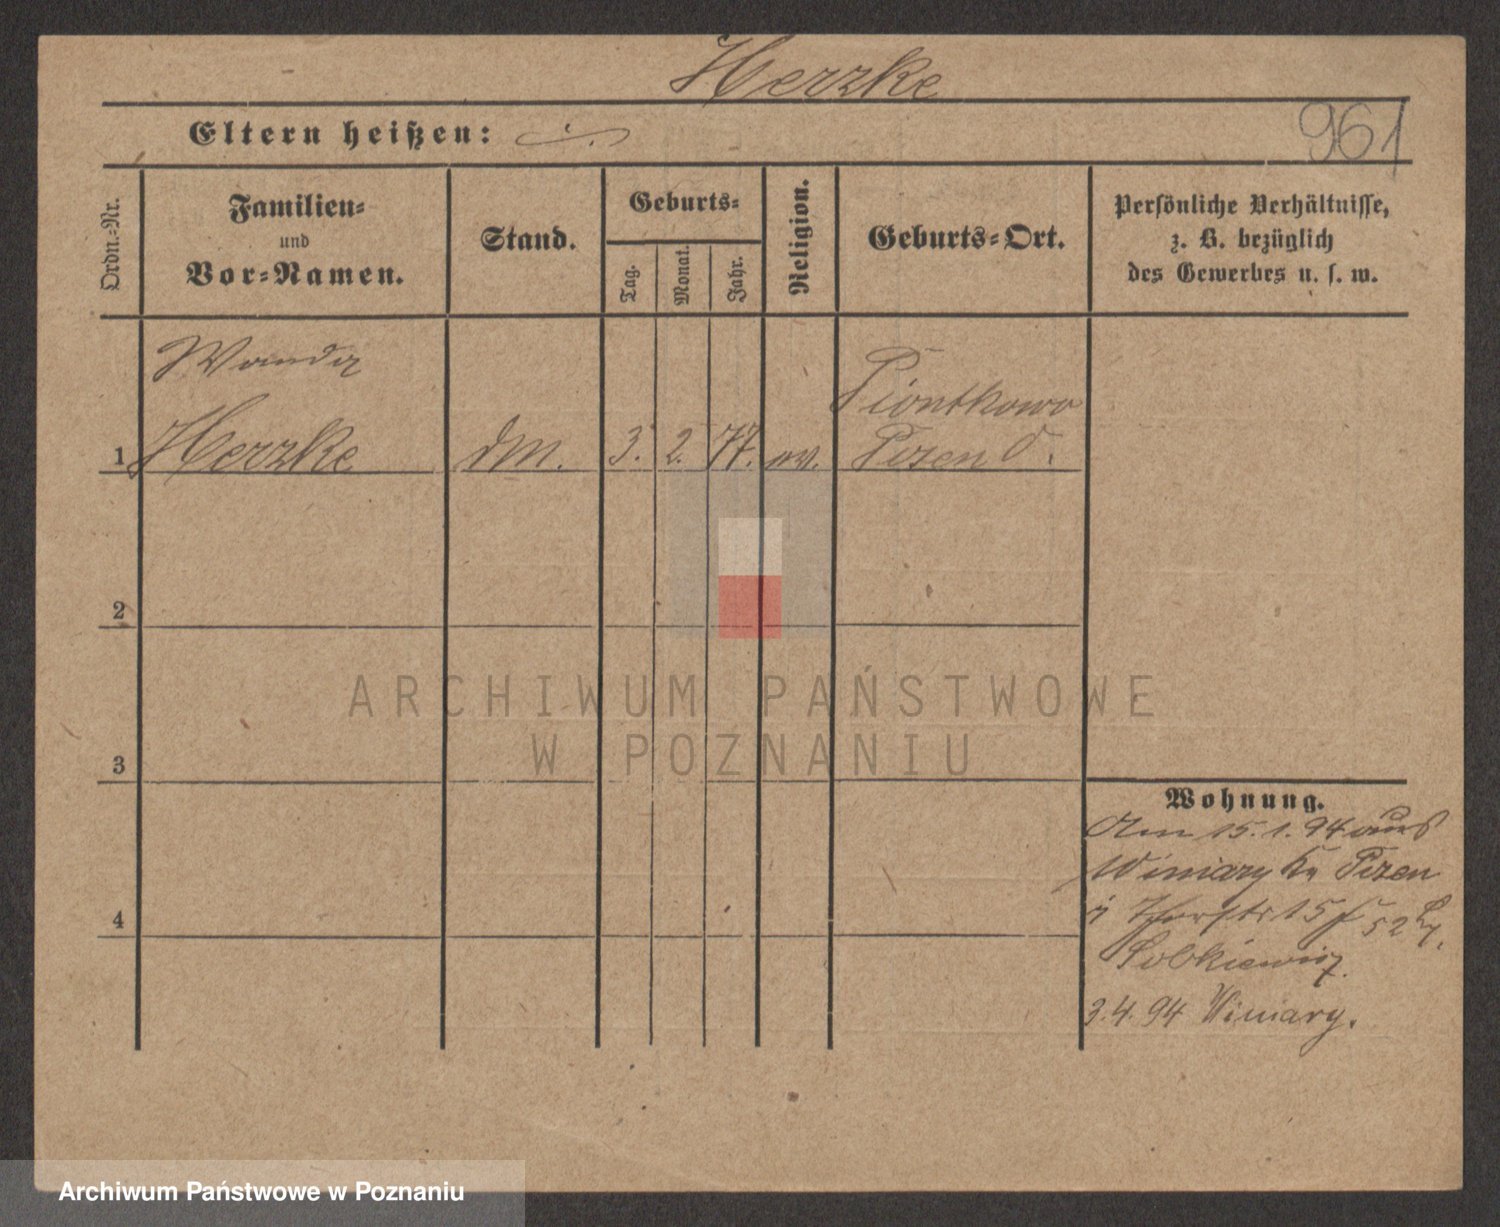 Herzke
961
Eltern heißen: ./.
Ordn.=Nr.
Familien=
und
Vor=Namen.
Stand.
Geburts=
Tag.
Monat.
Jahr.
Religion.
Geburts=Ort.
Persönliche Verhältnisse,
z. B. bezüglich
des Gewerbes u. s. w.
Wanda
1 Herzke
dM. 3. 2. 77. ev.
Piontkowo
Posen O.
2
3
4
Wohnung.
Am 15.1.94 aus
Winiary
15 52
Sobkiewicz
3.4.94 Winiary.
ARCHIWUM PAŃSTWOWE
W POZNANIU
Archiwum Państwowe w Poznaniu